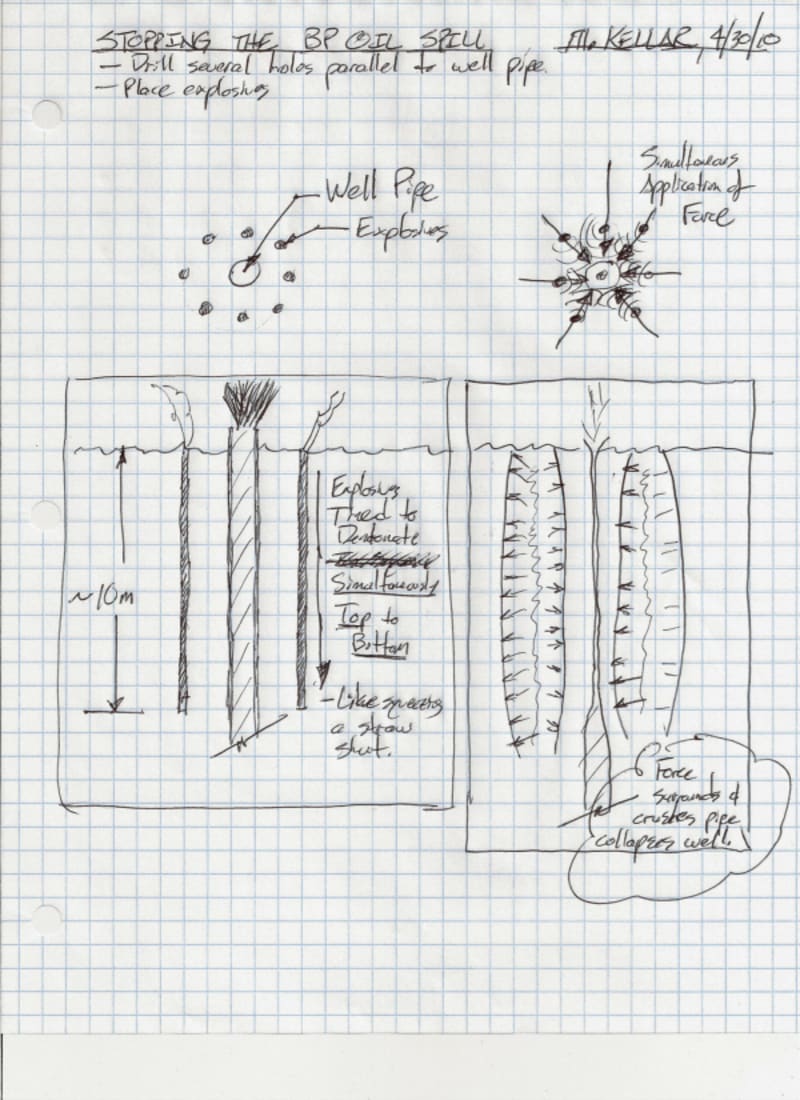 STOPPING THE BP OIL SPILL
M. KELLAR, 4/30/10
- Drill several holes parallel to well pipe.
- Place explosives
Well Pipe
Explosives
Simultaneous
Application of
Force
~10m
Explosives
Timed to
Detonate
Simultaneously
Top to
Bottom
- Like squeezing
a straw
shut.
Force
surrounds &
crushes pipe
collapses well.